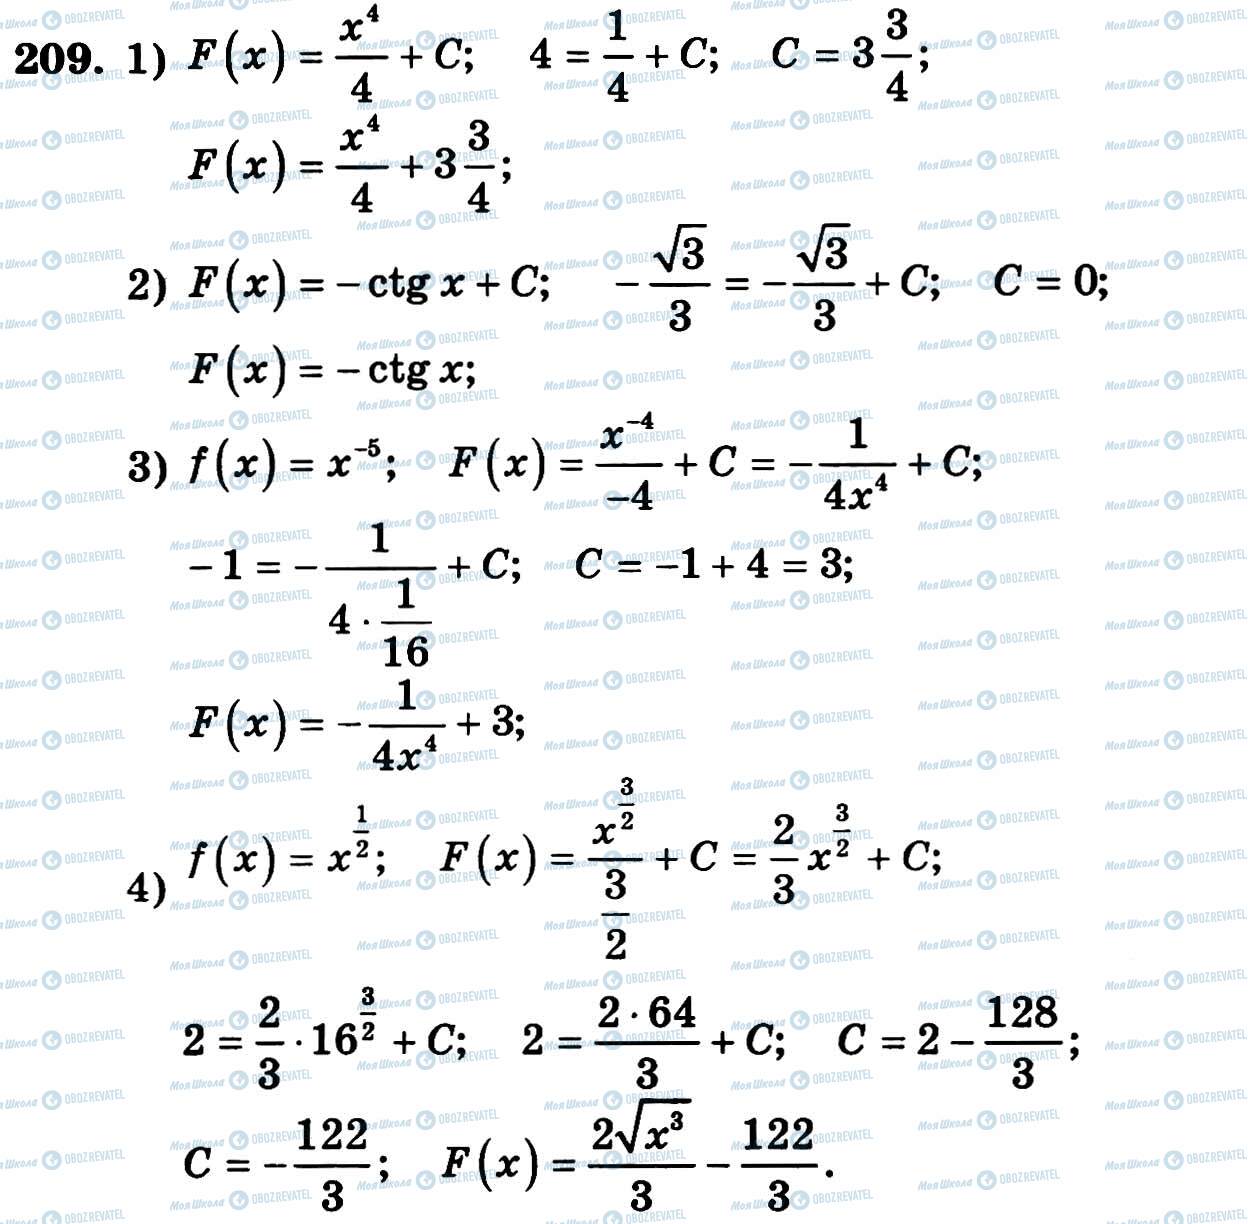 209. 1) F(x) = x⁴/4 + C; 4 = 1/4 + C; C = 3 3/4;
F(x) = x⁴/4 + 3 3/4;
2) F(x) = – ctg x + C; – √3/3 = – √3/3 + C; C = 0;
F(x) = – ctg x;
3) f(x) = x⁻⁵; F(x) = x⁻⁴/–4 + C = – 1/4x⁴ + C;
– 1 = – 1/(4 · 1/16) + C; C = –1 + 4 = 3;
F(x) = – 1/4x⁴ + 3;
4) f(x) = x^(1/2); F(x) = x^(3/2)/(3/2) + C = 2/3 x^(3/2) + C;
2 = 2/3 · 16^(3/2) + C; 2 = 2 · 64/3 + C; C = 2 – 128/3;
C = – 122/3; F(x) = 2√x³/3 – 122/3.
МояШкола OBOZREVATEL